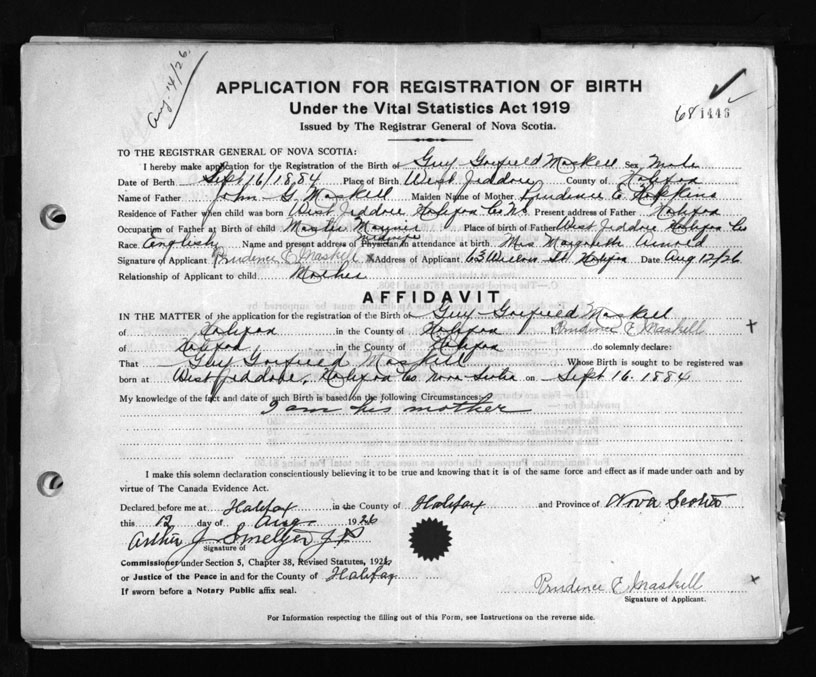 Aug. 14/26.
APPLICATION FOR REGISTRATION OF BIRTH
Under the Vital Statistics Act 1919
Issued by The Registrar General of Nova Scotia.
68 1446
TO THE REGISTRAR GENERAL OF NOVA SCOTIA:
I hereby make application for the Registration of the Birth of Guy Garfield Maskell Sex Male
Date of Birth Sept 16/1884 Place of Birth West Jeddore County of Halifax
Name of Father John G. Maskell Maiden Name of Mother Prudence E. Hopkins
Residence of Father when child was born West Jeddore Halifax Co NS Present address of Father Halifax
Occupation of Father at Birth of child Master Mariner Place of birth of Father West Jeddore Halifax Co
Race English Name and present address of Physician midwife in attendance at birth. Mrs. Margaret Arnold
Signature of Applicant Prudence E Maskell X Address of Applicant. 63 Willow St. Halifax Date Aug 12/26
Relationship of Applicant to child Mother
AFFIDAVIT
IN THE MATTER of the application for the registration of the Birth of Guy Garfield Maskell
of Halifax in the County of Halifax I Prudence E Maskell x
of Halifax in the County of Halifax do solemnly declare:
That Guy Garfield Maskell Whose Birth is sought to be registered was
born at West Jeddore, Halifax Co Nova Scotia on Sept. 16. 1884
My knowledge of the fact and date of such Birth is based on the following Circumstances:
I am his mother
I make this solemn declaration conscientiously believing it to be true and knowing that it is of the same force and effect as if made under oath and by
virtue of The Canada Evidence Act.
Declared before me at Halifax in the County of Halifax and Province of Nova Scotia
this 12 day of Aug. 1926
Arthur J Smeltzer J P
Signature of
Commissioner under Section 3, Chapter 38, Revised Statutes, 1926
or Justice of the Peace in and for the County of Halifax
If sworn before a Notary Public affix seal.
Prudence E Maskell x
Signature of Applicant.
For Information respecting the filling out of this Form, see Instructions on the reverse side.